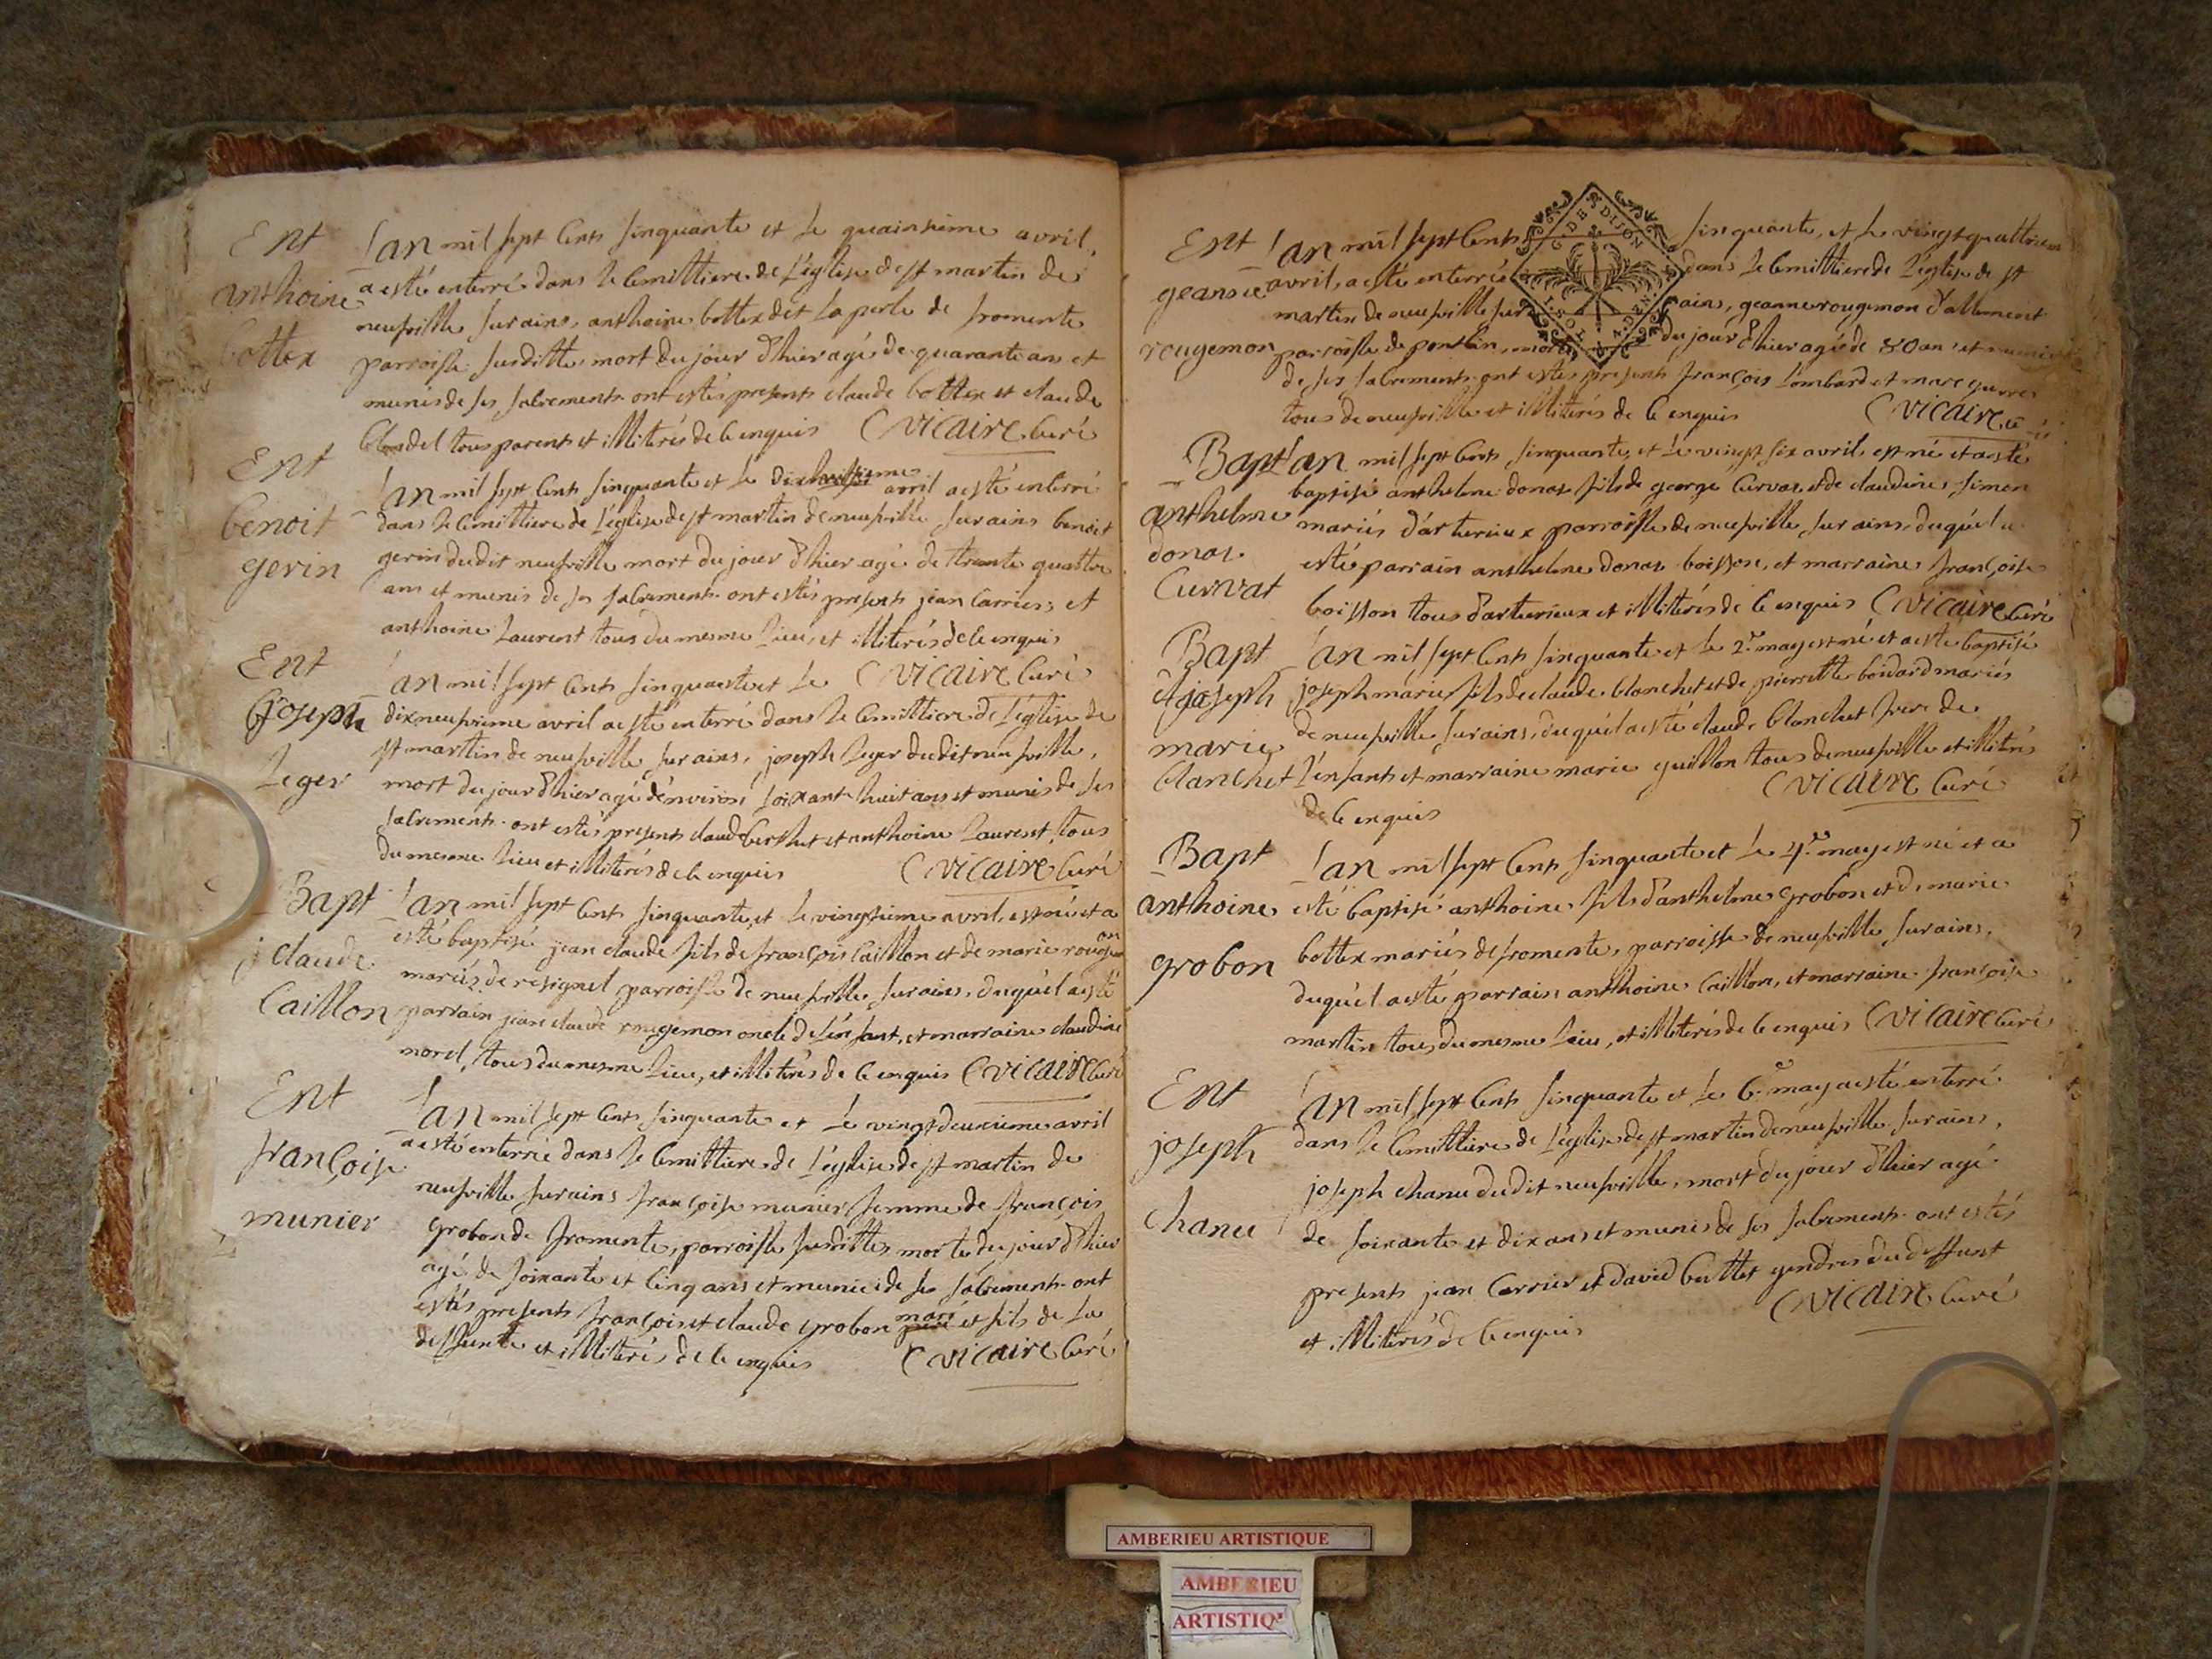 Ent
anthoine
bottex
Lan mil sept cents sinquante et le quainsieme avril
a esté enterré dans le cemittiere de l'église de st martin de
neufville sur ains, anthoine bottex dit la perle de fromente
parroisse susditte, mort du jour d'hier agé de quarante ans et
munis de ses sacrements ont estés presents claude bottex et claude
blondel tous parents et illiterés de ce enquis C vicaire curé
Ent
benoit
gerin
Lan mil sept cents sinquante et le dixhuitieme avril a esté enterré
dans le cemittiere de l'église de st martin de neufville sur ains benoit
gerin dudit neufville mort du jour d'hier agé de trante quattre
ans et munis de ses sacrements ont estés presents jean carrier, et
anthoine laurent tous du mesme lieu, et illiterés de ce enquis
C vicaire curé
Ent
joseph
leger
Lan mil sept cents sinquante et le
dixneufvieme avril a esté enterré dans le cemittiere de l'église de
st martin de neufville sur ains, joseph leger dudit neufville,
mort du jour d'hier agé d'environ soixante huit ans et munis de ses
sacrements ont estés presents claude berthet et anthoine laurent, tous
du mesme lieu et illiterés de ce enquis C vicaire curé
Bapt
j claude
Caillon
Lan mil sept cents sinquante, et le vingtieme avril, est né et a
esté baptisé jean claude fils de françois caillon et de marie rougemon
mariéz de resignel parroisse de neufville sur ains, duquél a esté
parrain jean claude rougemon oncle de l'énfant, et marraine claudine
morel, tous du mesme lieu, et illiterés de ce enquis C vicaire curé
Ent
françoise
munier
Lan mil sept cents sinquante et le vingtdeuxieme avril
a esté enterrée dans le cemittiere de l'église de st martin de
neufville sur ains françoise munier femme de françois
grobon de fromente, parroisse susditte, morte du jour d'hier
agé de soixante et cinq ans et munie de ses sacrements ont
estés presents françois et claude grobon mari et fils de la
deffunte et illiterés de ce enquis C vicaire curé
G DE DIJON
Ent
geanne
rougemon
Lan mil sept cents sinquante, et le vingtquattrieme
avril, a esté enterrée dans le cemittiere de l'église de st
martin de neufville sur ains, geanne rougemon d'allement
parroisse de pontin, morte du jour d'hier agée de 80 ans et munie
de ses sacrements ont estés presents françois lombard et marc guerre
tous de neufville et illiterés de ce enquis C vicaire
Bapt
anthelme
donat
Curvat
Lan mil sept cents sinquante, et le vingt six avril, est né et a esté
baptisé anthelme donat fils de george curvat, et de claudine simon
mariés d'arturieux parroisse de neufville sur ains, duquél a
esté parrain anthelme donat boisson, et marraine françoise
boisson tous d'arturieux et illiterés de ce enquis C vicaire curé
Bapt
joseph
marie
blanchet
Lan mil sept cents sinquante et le 2e may est né et a esté baptisé
joseph marie fils de claude blanchet et de pierrette boidard mariés
de neufville sur ains, duquél a esté claude blanchet frere de
l'énfant et marraine marie guillon tous de neufville et illiterés
de ce enquis C vicaire curé
Bapt
anthoine
grobon
Lan mil sept cents sinquante et le 4e may est né et a
esté baptisé anthoine fils d'anthelme grobon et de marie
bottex mariés de fromente, parroisse de neufville sur ains,
duquél a esté parrain anthoine caillon, et marraine françoise
martin tous du mesme lieu, et illiterés de ce enquis C vicaire curé
Ent
joseph
chanu
Lan mil sept cents sinquante et le 6e may a esté enterré
dans le cemittiere de l'église de st martin de neufville sur ains,
joseph chanu dudit neufville, mort du jour d'hier agé
de soixante et dix ans et munis de ses sacrements ont estés
presents jean carrier et david berttet gendres du deffunt
et illiterés de ce enquis C vicaire curé
AMBERIEU ARTISTIQUE
AMBERIEU
ARTISTIQ